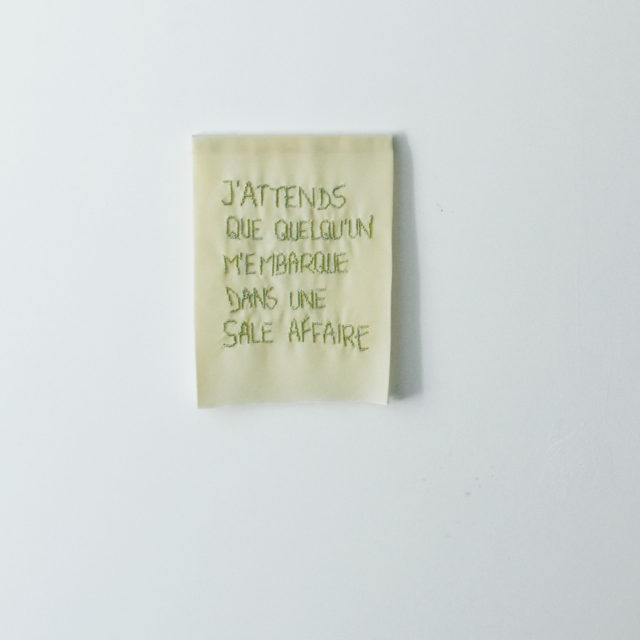 J'ATTENDS
QUE QUELQU'UN
M'EMBARQUE
DANS UNE
SALE AFFAIRE